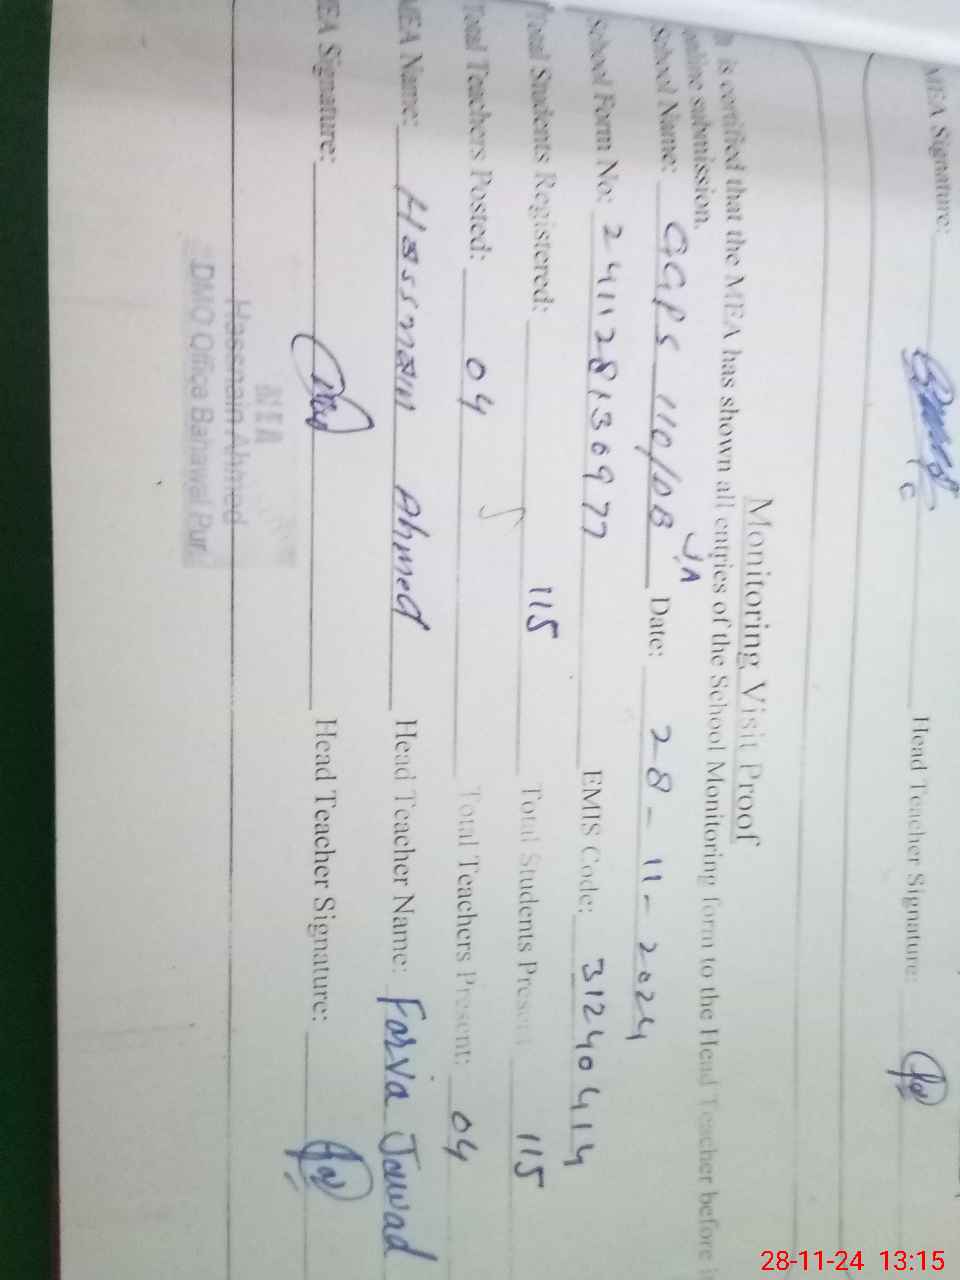 MEA Signature: Head Teacher Signature:
Monitoring Visit Proof
is certified that the MEA has shown all entries of the School Monitoring form to the Head Teacher before
online submission.
School Name: GGPS 110/DB J.A Date: 28-11-2024
School Form No: EMIS Code: 31240414
Total Students Registered: 115 Total Students Present: 115
Total Teachers Posted: 04 Total Teachers Present: 04
MEA Name: Hassnain Ahmed Head Teacher Name: Farva Jawad
MEA Signature: Head Teacher Signature:
MEA
Hasnain Ahmed
DMO Office Bahawal Pur
28-11-24 13:15